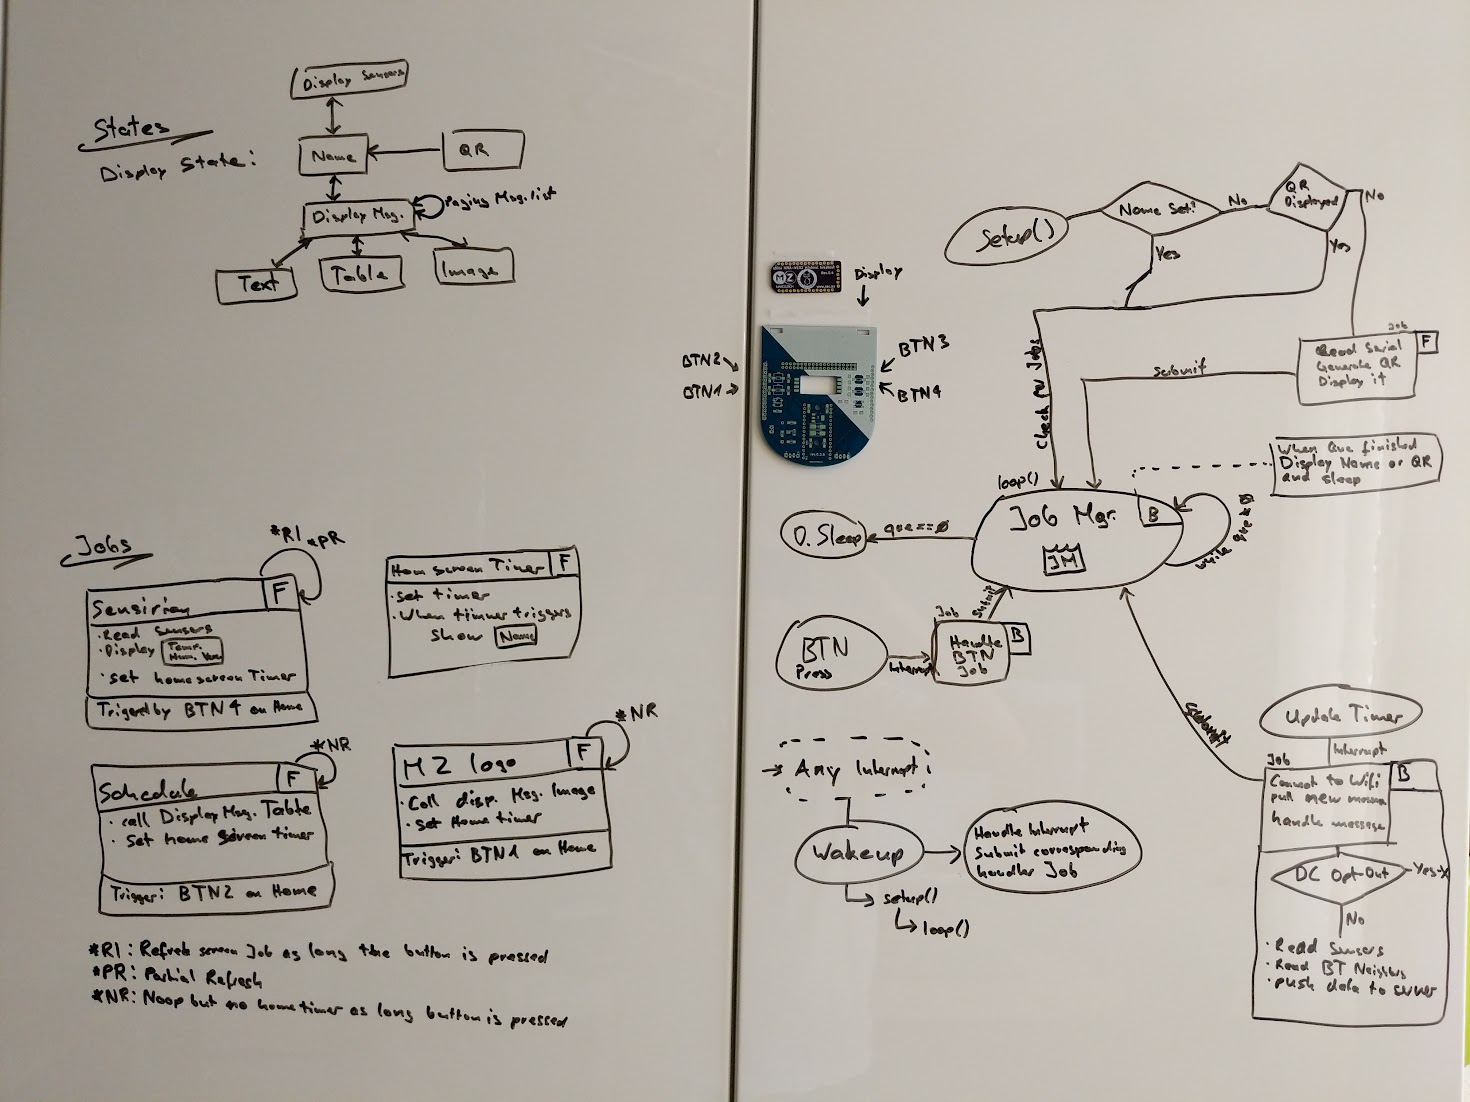 States
Display State:
Display Sensors
Name
QR
Display Msg.
Paging Msg. list
Text
Table
Image
Jobs
*RI *PR
Sensirion
F
·Read Sensors
·Display
Temp.
Hum.
·set homescreen Timer
Trigered by BTN4 on Home
Hom screen Timer
F
·set timer
·When timmer triggers
show Name
*NR
Schedule
F
·call Display Msg. Table
·Set home screen timer
Trigger: BTN2 on Home
*NR
MZ logo
F
·Call disp. Msg. Image
·Set Home timer
Trigger: BTN1 on Home
*RI: Refresh screen Job as long the button is pressed
*PR: Partial Refresh
*NR: Noop but no hometimer as long button is pressed
Setup()
Name Set?
No
Yes
QR
Displayed
No
Yes
Job
F
Read Serial
Generate QR
Display it
Submit
Check for Jobs
MZ
Display
BTN2
BTN1
BTN3
BTN4
When Que finished
Display Name or QR
and sleep
loop()
Job Mgr.
B
JM
D. Sleep
que==0
BTN
Press
Interrupt
Job
Handle
BTN
Job
B
Submit
Any Interrupt
Wakeup
setup()
loop()
Handle Interrupt
Submit corresponding
handler Job
Submit
Update Timer
Interrupt
Job
B
Connect to Wifi
pull new
handle message
DC Opt-Out
Yes-X
No
·Read Sensors
·Read BT Neighbors
·push data to server